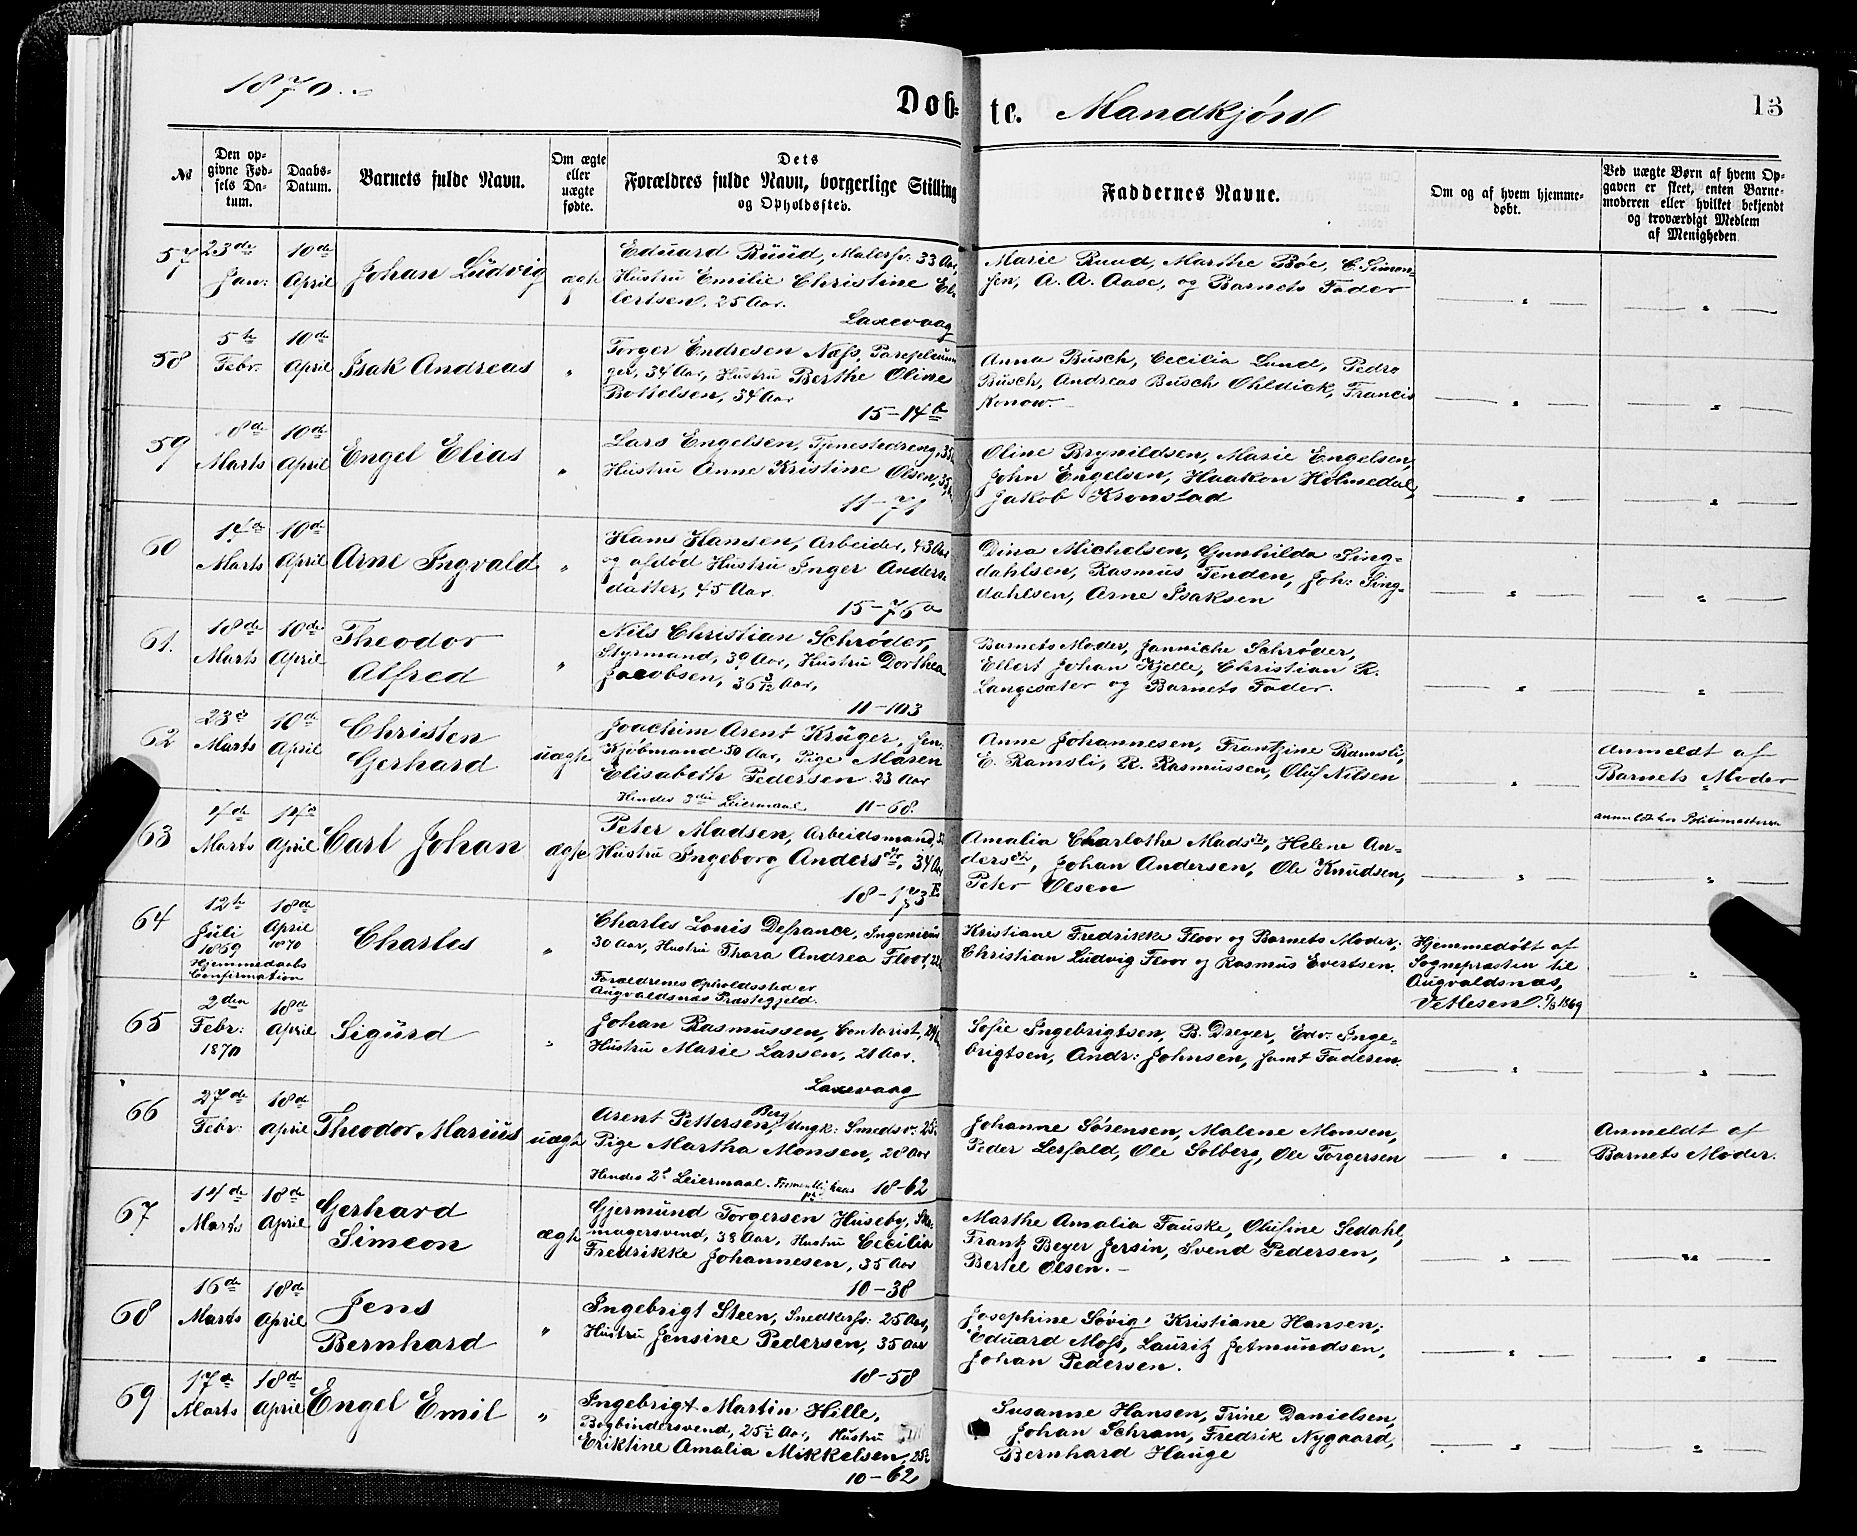 1870.
Døb-
te. Mandkjøn
13
№
Den op-
givne Fød-
sels Da-
tum.
Daabs-
Datum.
Barnets fulde Navn.
Om ægte
eller
uægte
fødte.
Dets
Forældres fulde Navn, borgerlige Stilling
og Opholdssted.
Faddernes Navne.
Om og af hvem hjemme-
døbt.
Ved uægte Børn af hvem Op-
gaven er skeet, enten Barne-
moderen eller hvilket bekjendt
og troværdigt Medlem
af Menigheden
57
23de
Jan:
10de
April
Johan Ludvig
ægte
Eduard Ruud, Malersv. 33 Aar,
Hustru Emilie Christine El-
lertsen, 25 Aar.
Laxevaag
Marie Ruud, Marthe Bøe, C. Simon-
sen, A. A. Aase, og Barnets Fader
58
5te
Febr.
10de
April
Isak Andreas
"
Torger Endresen Næss,
34 Aar, Hustru Berthe Oline
Bottelsen, 34 Aar
15-14b
Anna Busch, Cecilia Lund, Pedro
Busch, Andreas Busch Ohldick, Francis
Konow.
59
8de
Marts
10de
April
Engel Elias
"
Lars Engelsen, Tjenestedreng, 33
Hustru Anne Kristine Olsen, 35
11-71
Oline Brynildsen, Marie Engelsen,
John Engelsen, Haakon Holmedal,
Jakob Kronstad
60
14de
Marts
10de
April
Arne Ingvald
"
Hans Hansen, Arbeider, 43 Aar
og afdød Hustru Inger Anders-
datter, 45 Aar.
15-76a
Dina Michelsen, Gunhilda Sing-
dahlsen, Rasmus Tenden, Joh: Sing-
dahlsen, Arne Isaksen
61.
18de
Marts
10de
April
Theodor
Alfred
"
Nils Christian Schrøder,
Styrmand, 30 Aar, Hustru Dorthea
Jacobsen, 36 3/12 Aar,
11-103
Barnets Moder, Jannicke Schrøder,
Ellert Johan Kjelle, Christian R.
Langesæter og Barnets Fader.
62
23de
Marts
10de
April
Christen
Gerhard
uægte
Joachim Arent Krüger, fhv.
Kjøbmand 50 Aar, Pige Maren
Elisabeth Pedersen 23 Aar
Hendes 3die Leiermaal 11-68.
Anne Johannesen, Frantzine Ramsli,
E. Ramsli, R. Rasmussen, Oluf Nilsen
Anmeldt af
Barnets Moder
anmeldt hos Politimesteren
63
4de
Marts
14de
April
Carl Johan
ægte
Peter Madsen, Arbeidsmand,
Hustru Ingeborg Andersdtr, 34 Aar
18-173E
Amalia Charlothe Madsdtr, Helene An-
dersdtr, Johan Andersen, Ole Knudsen,
Peter Olsen
64
12te
Juli
1869
Hjemmedaabs
Confirmation
18de
April
1870
Charles
"
Charles Louis Defrance, Ingeniør
30 Aar, Hustru Thora Andrea Floor, 22
Forældrenes Opholdssted er
Augvaldsnæs Præstegjeld.
Kristiane Fredrikke Floor og Barnets Moder;
Christian Ludvig Floor og Rasmus Evertsen.
Hjemmedøbt af
Sognepræsten til
Augvaldsnæs,
Vetlesen. 7/8 1869
65
2den
Febr:
1870
18de
April
Sigurd
"
Johan Rasmussen, Contorist, 29
Hustru Marie Larsen, 21 Aar.
Laxevaag
Sofie Ingebrigtsen, B. Dreyer, Edv. Inge-
brigtsen, Andr: Johnsen, samt Faderen.
66
27de
Febr:
18de
April
Theodor Marius
uægte
Arent Pettersen Berg, Ungk: Smedsv. 25
Pige Martha Monsen, 28 Aar
Hendes 2t Leiermaal. 18-62
Johanne Sørensen, Malene Monsen,
Peder Lerfald, Ole Solberg, Ole Torgersen
Anmeldt af
Barnets Moder.
67
14de
Marts
18de
April
Gerhard
Simeon
ægte
Gjermund Torgersen Huseby, Sko-
magersvend, 38 Aar, Hustru Cecilia
Fredrikke Johannesen, 35 Aar
10-38
Marthe Amalia Fauske, Olufine Sedahl,
Frantz Beyer Jersin, Svend Pedersen,
Bertel Olsen.
68
16de
Marts
18de
April
Jens
Bernhard
"
Ingebrigt Steen, Snedkersv: 25 Aar,
Hustru Jensine Pedersen, 35 Aar
18-58
Josephine Søvig, Kristiane Hansen,
Eduard Moss, Lauritz Jetmundsen,
Johan Pedersen.
69
17de
Marts
18de
April
Engel Emil
"
Ingebrigt Martin Hille,
Bogbindersvend, 25 Aar, Hustru
Eriktine Amalia Mikkelsen, 25
10-62
Susanne Hansen, Trine Danielsen,
Johan Schram, Fredrik Nygaard,
Bernhard Hauge